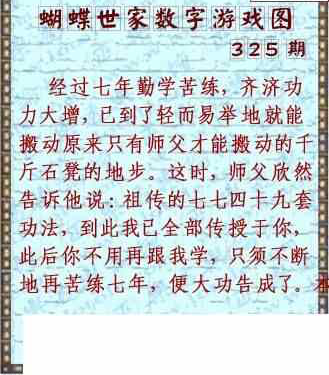 蝴蝶世家数字游戏图
325期
经过七年勤学苦练，齐济功
力大增，已到了轻而易举地就能
搬动原来只有师父才能搬动的千
斤石凳的地步。这时，师父欣然
告诉他说：祖传的七七四十九套
功法，到此我已全部传授于你，
此后你不用再跟我学，只须不断
地再苦练七年，便大功告成了。